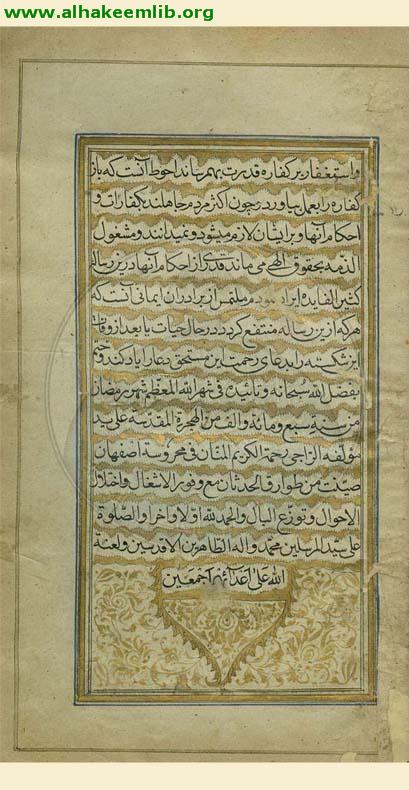 www.alhakeemlib.org
واستغفار بر کفاره قدرت بهم رساند احوط آنست که باز
کفاره را بعمل بیاورد و چون اکثر مردم جاهلند بکفارات و
احکام آنها و بر ایشان لازم میشود و نمیدانند و مشغول
الذمه بحقوق الهی می‌مانند قدری از احکام آنها درین رساله
کثیر الفایده ایراد نمودم و ملتمس از برادران ایمانی آنست که
هر که ازین رساله منتفع گردد در حال حیات یا بعد از وفات
این شکسته را بدعای رحمت این مستحق دعا را یاد کند و ختم
بفضل الله سبحانه وتائیده فی شهر الله المعظم شهر رمضان
من سنة سبع ومائة والف من الهجرة المقدسة علی ید
مؤلفه الراجی رحمة الکریم المنان فی محروسة اصفهان
صینت من طوارق الحدثان مع وفور الاشغال واختلال
الاحوال وتوزع البال والحمد لله اولا واخرا والصلوة
علی سید المرسلین محمد واله الطاهرین الاقدسین ولعنة
الله علی اعدائهم اجمعین